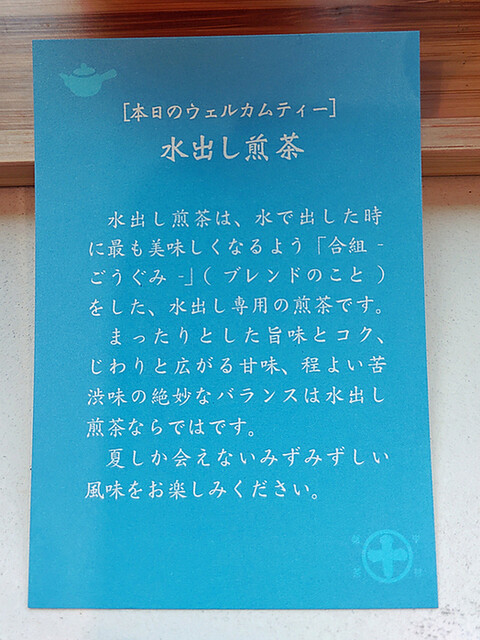 [本日のウェルカムティー]
水出し煎茶
水出し煎茶は、水で出した時
に最も美味しくなるよう「合組 -
ごうぐみ -」( ブレンドのこと )
をした、水出し専用の煎茶です。
まったりとした旨味とコク、
じわりと広がる甘味、程よい苦
渋味の絶妙なバランスは水出し
煎茶ならではです。
夏しか会えないみずみずしい
風味をお楽しみください。